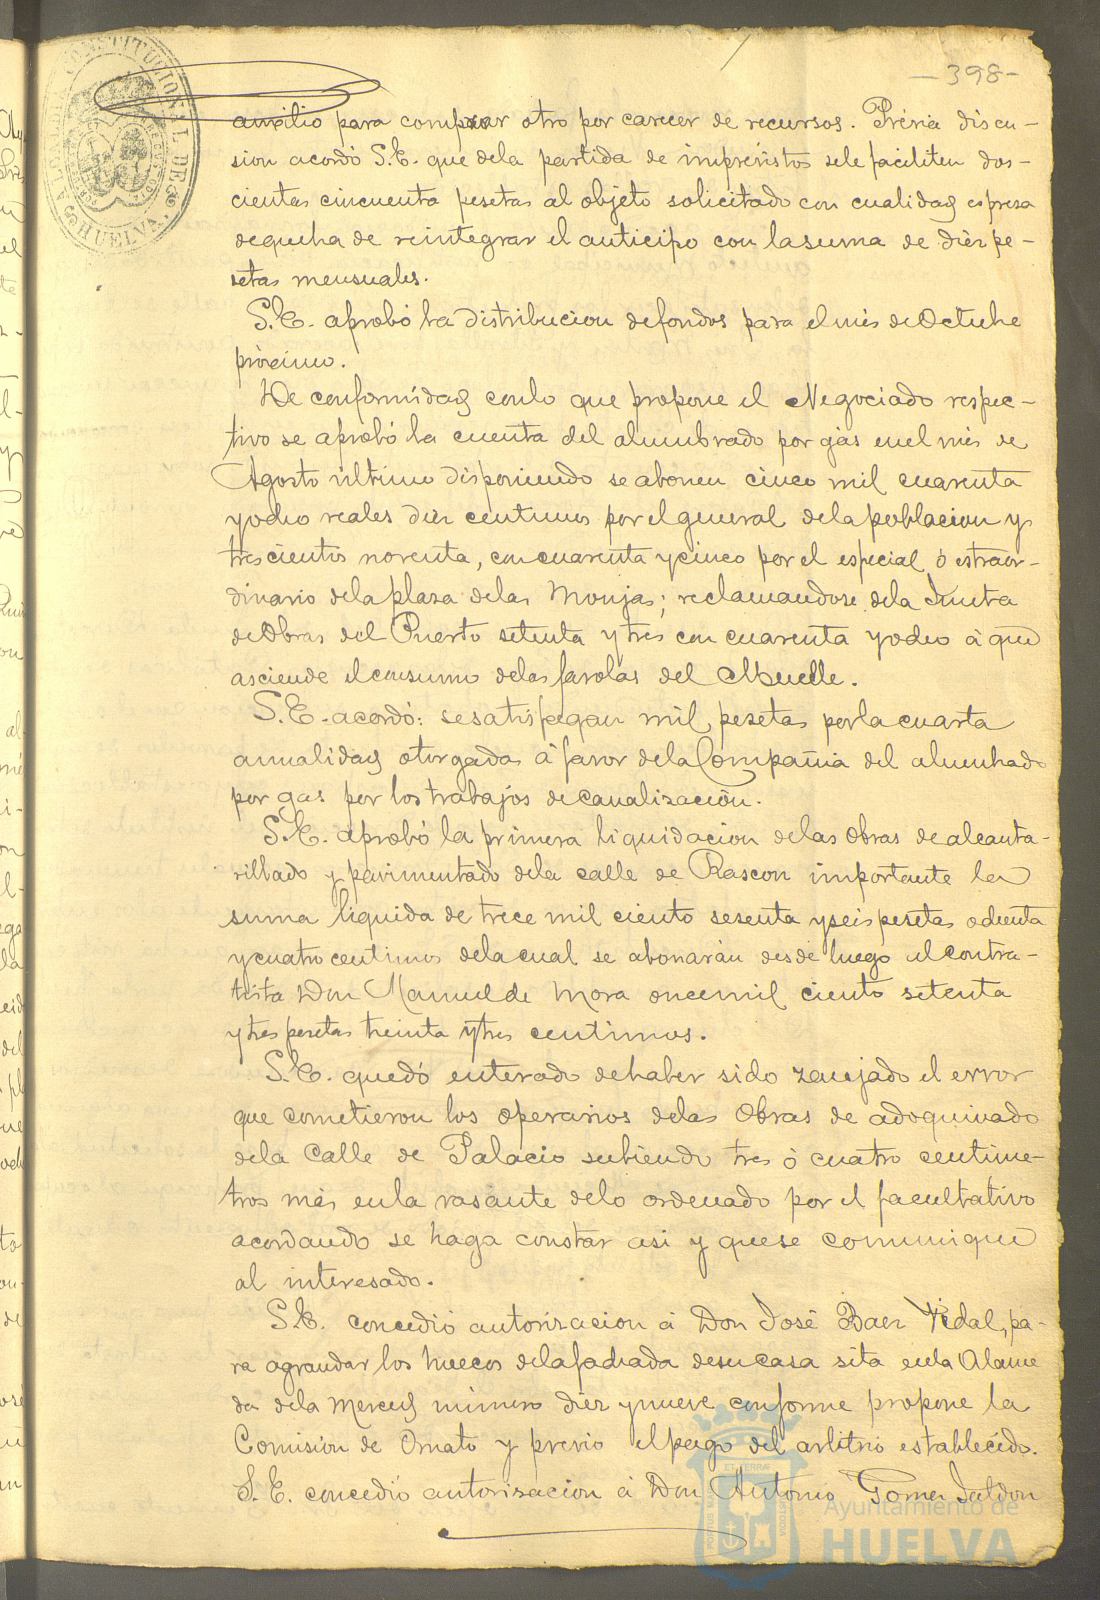 -398-
ALCALDIA CONSTITUCIONAL DE HUELVA
auxilio para comprar otro por carecer de recursos. Prévia discu-
sion acordó S.E. que dela partida de imprevistos sele faciliten dos-
cientas cincuenta pesetas al objeto solicitado con cualidad espresa
dequeha de reintegrar el anticipo con lasuma de diez pe-
setas mensuales.
S.E. aprobó la distribucion defondos para elmés deOctubre
próximo.
De conformidad conlo que propone el Negociado respec-
tivo se aprobó la cuenta del alumbrado por gas enel més de
Agosto último disponiendo se abonen cinco mil cuarenta
yocho reales diez centimos por el general dela poblacion y
trescientos noventa, con cuarenta ycinco por el especial ó estraor-
dinario dela plaza delas Monjas; reclamandose dela Junta
deObras del Puerto setenta y tres con cuarenta yocho á que
asciende el consumo delas farolas del Muelle.
S.E. acordó: sesatisfagan mil pesetas porla cuarta
anualidad otorgada á favor dela Compañia del alumbrado
por gas por los trabajos de canalización.
S.E. aprobó la primera liquidacion delas obras de alcanta-
rillado y pavimentado dela calle de Rascon importante la
suma liquida de trece mil ciento sesenta yseis pesetas ochenta
ycuatro centimos dela cual se abonarán desde luego al contra-
tista Don Manuel de Mora oncemil ciento setenta
ytres pesetas treinta ytres centimos.
S.E. quedó enterado dehaber sido zanjado el error
que cometieron los operarios delas Obras de adoquinado
dela Calle de Palacio subiendo tres ó cuatro centime-
tros más enla rasante delo ordenado por el facultativo
acordando se haga constar asi y quese comunique
al interesado.
S.E. concedió autorizacion á Don José Baez Vidal, pa-
ra agrandar los huecos delafachada desucasa sita enla Alame
da dela Merced número diez ynueve conforme propone la
Comisión de Ornato y previo elpago del arbitrio establecido.
S.E. concedió autorizacion á Don Antonio Gomez Jaldon
Ayuntamiento de
HUELVA